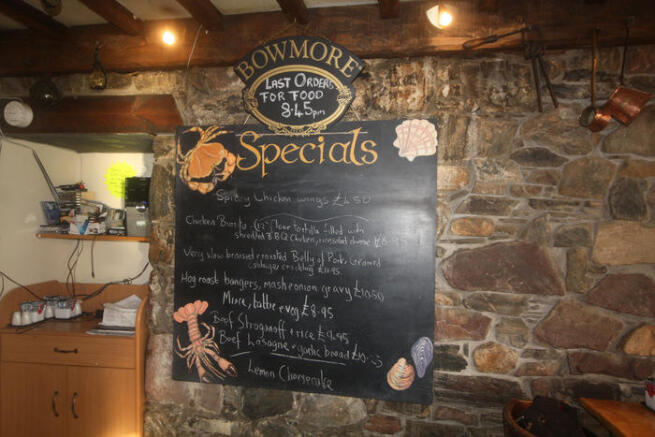 BOWMORE
LAST ORDERS
FOR FOOD
8.45pm
Specials
Spicy Chicken wings £4.50
Chicken Burrito (12" flour tortilla filled with
shredded BBQ Chicken,
Very slow braised + roasted Belly of Pork, Creamed
cabbage crackling
Hog roast bangers, mash + onion gravy £10.50
Mince, tattie + veg £8.95
Beef Stroganoff + rice £9.95
Beef Lasagne + garlic bread
Lemon Cheesecake